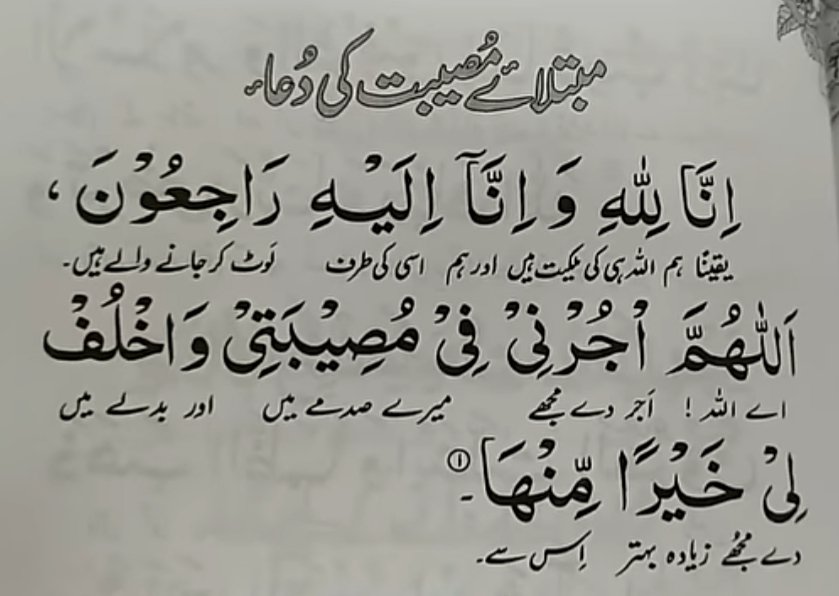 مبتلائے مُصیبت کی دُعاء
اِنَّا لِلّٰهِ وَ اِنَّآ اِلَيْهِ رَاجِعُوْنَ ،
یقینًا ہم اللہ ہی کی ملکیت ہیں اور ہم اسی کی طرف لَوٹ کر جانے والے ہیں۔
اَللّٰهُمَّ اْجُرْنِيْ فِيْ مُصِيْبَتِيْ وَاخْلُفْ
اے اللہ ! اَجر دے مجھے میرے صدمے میں اور بدلے میں
لِيْ خَيْرًا مِّنْهَا ①۔
دے مجھے زیادہ بہتر اِس سے۔